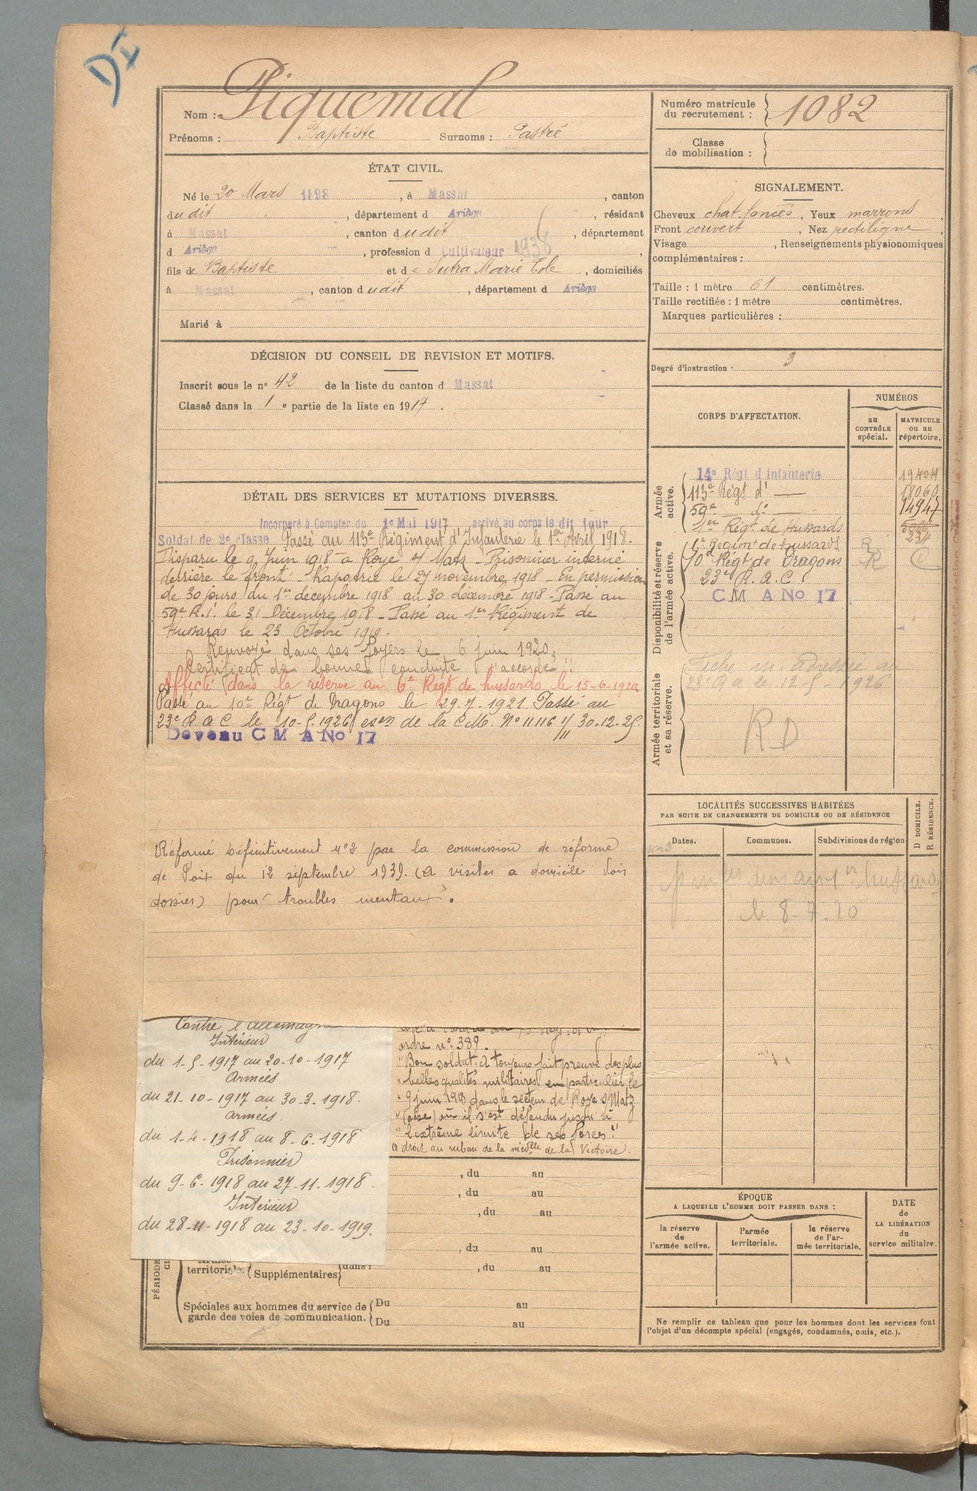 DI
Nom : Piquemal
Prénoms : Baptiste Surnoms : Pastré
Numéro matricule du recrutement : 1082
Classe de mobilisation :
ÉTAT CIVIL.
Né le 20 Mars 1898, à Massat, canton
dudit, département d Ariège, résidant
à Massat, canton dudit, département
d Ariège, profession d Cultivateur 1938
fils de Baptiste et de Sutra Marie Cole, domiciliés
à Massat, canton dudit, département d Ariège
Marié à
SIGNALEMENT.
Cheveux chat. foncés, Yeux marrons,
Front couvert, Nez rectiligne,
Visage , Renseignements physionomiques
complémentaires :
Taille : 1 mètre 61 centimètres.
Taille rectifiée : 1 mètre centimètres.
Marques particulières :
Degré d'instruction : 3
DÉCISION DU CONSEIL DE REVISION ET MOTIFS.
Inscrit sous le n° 42 de la liste du canton d Massat
Classé dans la 1e partie de la liste en 1917.
DÉTAIL DES SERVICES ET MUTATIONS DIVERSES.
Incorporé à Compter du 1e Mai 1917 arrivé au corps le dit jour
Soldat de 2e classe Passé au 113e Régiment d'Infanterie le 1er Avril 1918.
Disparu le 9 Juin 1918 à Roye s/ Matz - Prisonnier interné
derrière le front - Rapatrié le 27 novembre 1918 - En permission
de 30 jours du 1er décembre 1918 au 30 décembre 1918 - Passé au
59e R.I. le 31 Décembre 1918 - Passé au 1er Régiment de
Hussards le 23 Octobre 1919.
Renvoyé dans ses foyers le 6 juin 1920,
Certificat de bonne conduite "accordé"
Affecté dans la réserve au 6e Régt de hussards le 15-6-1920
Passé au 10e Régt de Dragons le 29.7.1921. Passé au
23e R A C le 10-5.1926 de la C.M. N° 11116 30.12.25.
Devenu C M A No 17
Réformé Définitivement n°2 par la commission de réforme
de Foix du 12 septembre 1939. (a visiter a domicile Voir
dossier) pour "troubles mentaux".
CORPS D'AFFECTATION.
NUMÉROS
au CONTRÔLE spécial.
MATRICULE ou au répertoire.
Armée active.
14e Régt d'Infanterie 19404
113e Régt d° 18060
59e d° 14947
1er Régt de Hussards 234
Disponibilité et réserve de l'armée active.
6e Régiment de hussards R
10e Régt de Dragons R C
23e R.A.C.
C M A No 17
Armée territoriale et sa réserve.
Fiche m. adressée au
23e R a le 12-5-1926
RD
LOCALITÉS SUCCESSIVES HABITÉES
PAR SUITE DE CHANGEMENTS DE DOMICILE OU DE RÉSIDENCE
Dates. Communes. Subdivisions de région
D DOMICILE. R RÉSIDENCE.
hussards
le 8-7-20
Contre l'Allemagne
Intérieur
du 1-5-1917 au 20-10-1917
Armées
du 21-10-1917 au 30-3-1918.
Armées
du 1-4-1918 au 8-6-1918
Prisonnier
du 9-6-1918 au 27-11-1918.
Intérieur
du 28-11-1918 au 23-10-1919.
ordre n° 389.
"Bon soldat. a toujours fait preuve des plus
"belles qualités militaires en particulier le
"9 juin 1918 dans le secteur de Roye s/Matz
"(oise) où il s'est défendu jusqu'à
"l'extrême limite de ses forces."
a droit au ruban de la médlle de la Victoire.
, du au
, du au
, du au
, du au
territoriale. Supplémentaires dans , du au
Spéciales aux hommes du service de garde des voies de communication. Du au
Du au
ÉPOQUE
A LAQUELLE L'HOMME DOIT PASSER DANS :
la réserve de l'armée active.
l'armée territoriale.
la réserve de l'armée territoriale.
DATE de LA LIBÉRATION du service militaire.
Ne remplir ce tableau que pour les hommes dont les services font
l'objet d'un décompte spécial (engagés, condamnés, omis, etc.).